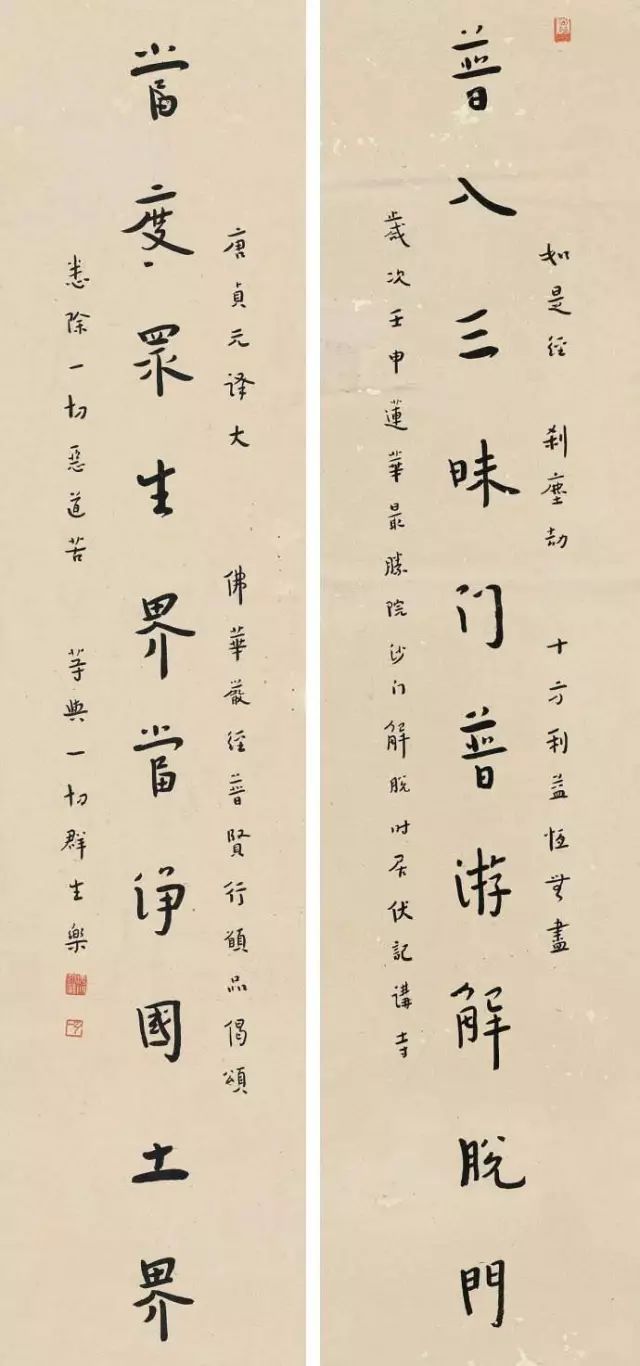 如是經 刹塵劫 十方利益恆無盡
普入三昧门普游解脱門
歲次壬申蓮華最勝院沙门解脱时居伏記講寺
唐貞元译大 佛華嚴經普賢行願品偈頌
當度眾生界當淨國土界
悉除一切惡道苦 等與一切群生樂